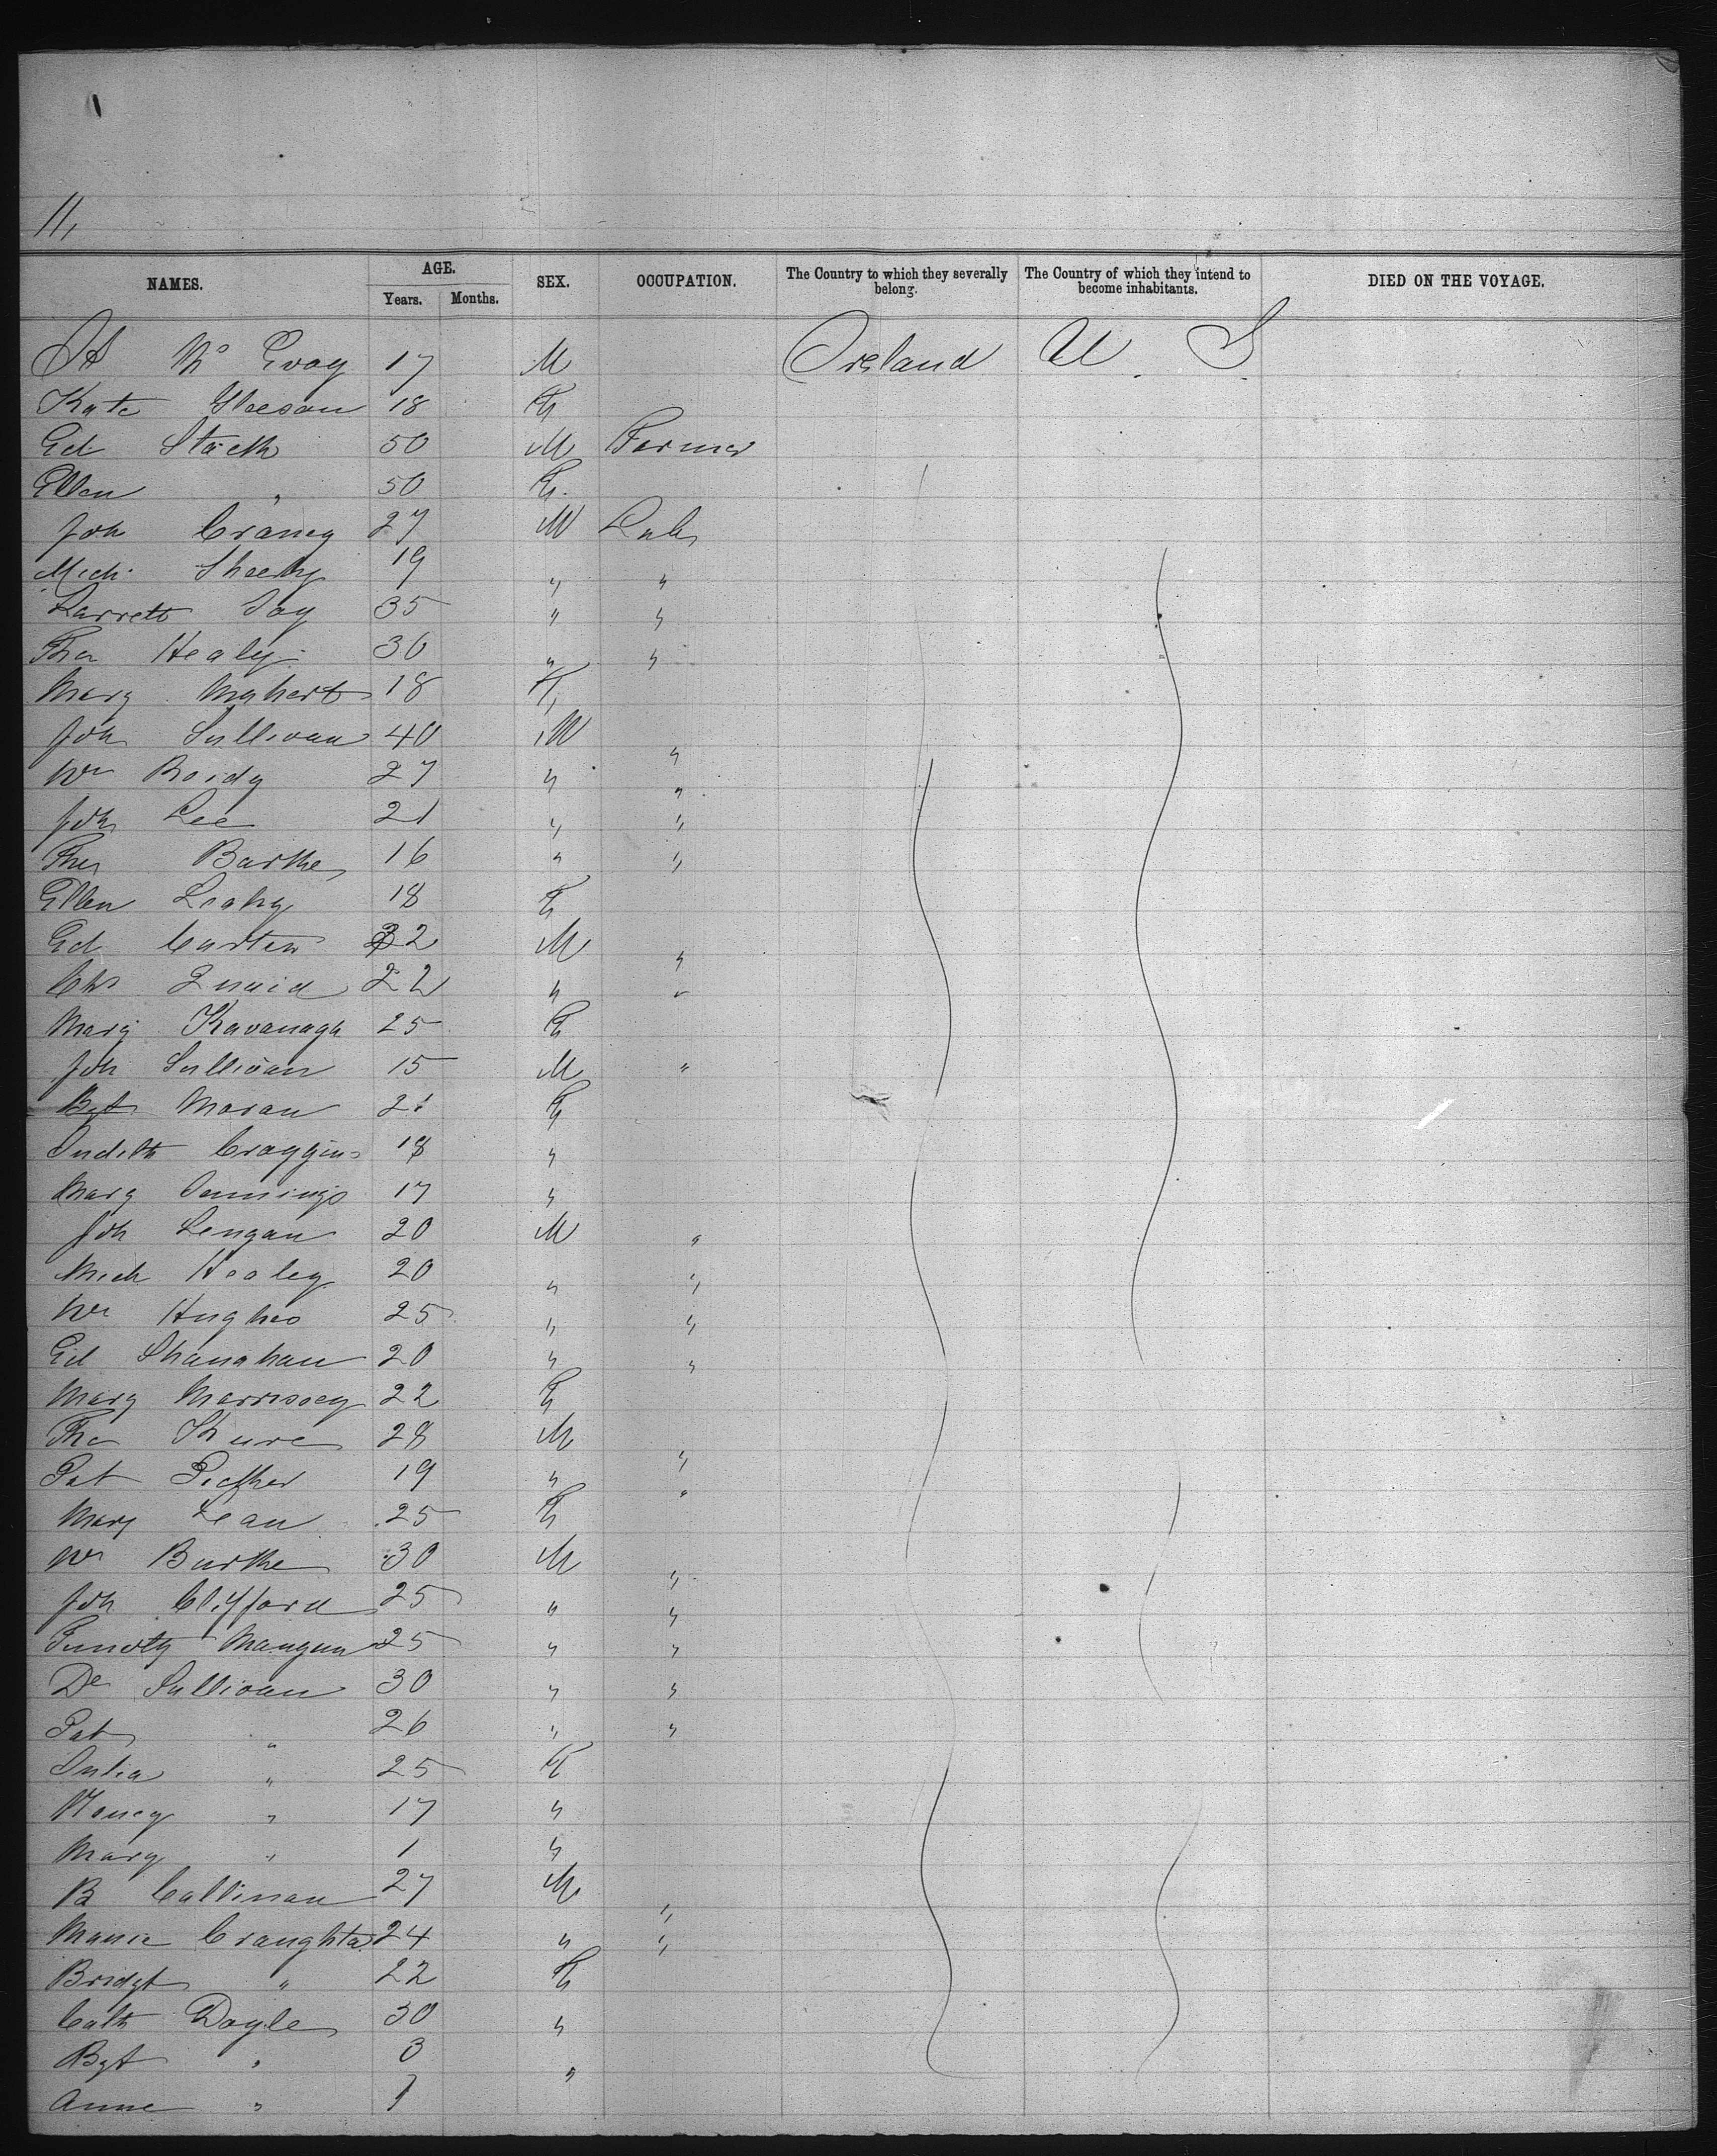 11,
NAMES. AGE. Years. Months. SEX. OCCUPATION. The Country to which they severally belong. The Country of which they intend to become inhabitants. DIED ON THE VOYAGE.
Mc Evoy 17 M Ireland U. S.
Kate Gleeson 18 F
Ed Stack 50 M Farmer
Ellen " 50 F
Joh Craney 27 M Lab
Mich Sheehy 19 " "
Garrett Joy 35 " "
Tho Healy 30 " "
Mary 18 F
Joh Sullivan 40 M "
Wm 27 " "
Joh Lee 21 " "
Tho Barke 16 " "
Ellen Leahy 18 F
Ed Carten 32 M "
Chs Quaid 22 " "
Mary Kavanagh 25 F
Joh Sullivan 15 M "
Bgt Moran 21 F
Judith Croggins 18 "
Mary Jennings 17 "
Joh Lengan 20 M "
Mich Healey 20 " "
Wm Hughes 25 " "
Ed Shanahan 20 " "
Mary Morrissey 22 F
Tho 28 M "
Pat 19 " "
Mary 25 F
Wm Burke 30 M "
Joh Clifford 25 " "
Timoty Mangan 25 " "
De Sullivan 30 " "
Pat " 26 " "
Julia " 25 F
Nancy " 17 "
Mary " 1 "
Callinan 27 M "
Craughta 24 " "
Bridgt " 22 F
Cath Doyle 30 "
Bgt " 3 "
Anne " 1